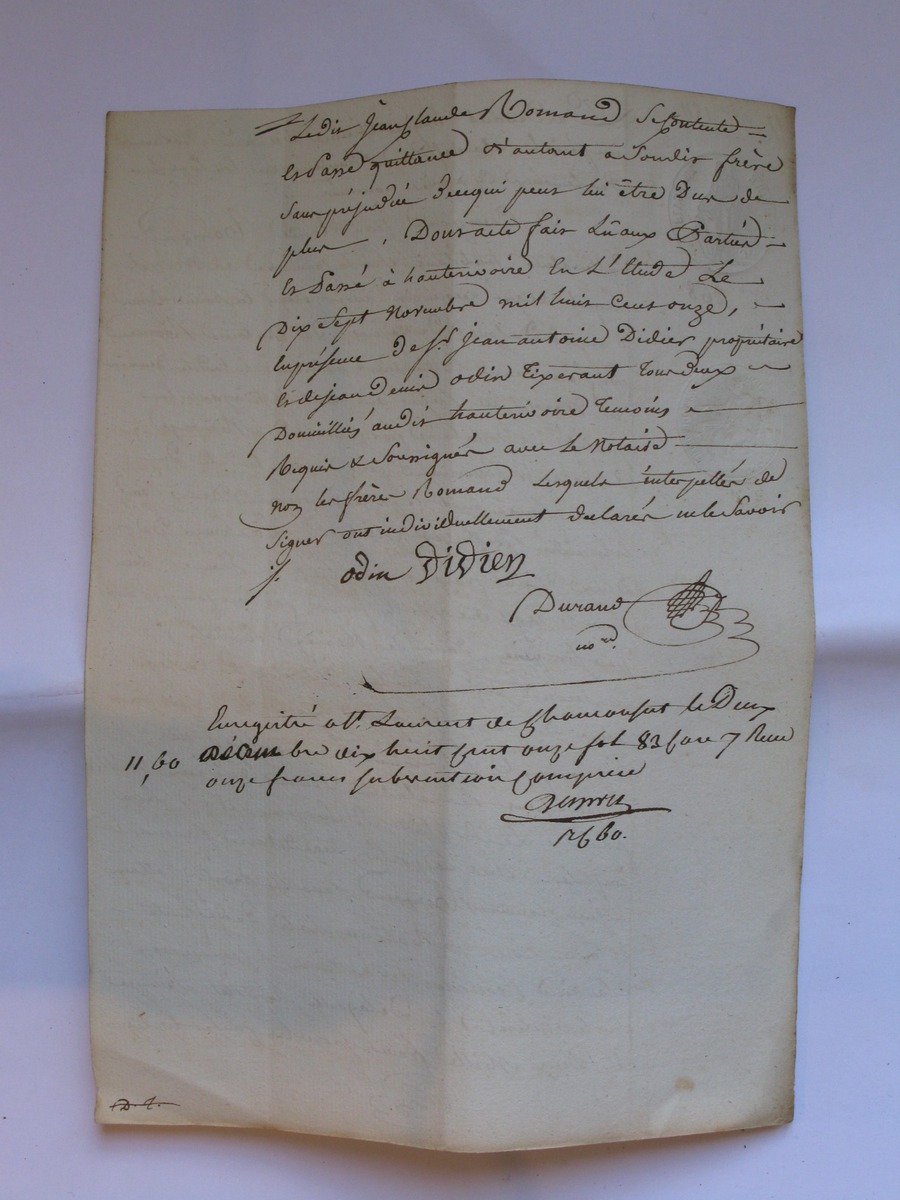 Ledit Jean Claude Romand Se Contente
Et Passe quittance d'autant a Sondit frère
Sans préjudice de ce qui peut lui être Dut de
plus. Dont acte fait Lû aux Parties
Et Passé à hauterivoire En L'Etude Le
Dix Sept Novembre mil huit Cent onze,
En présence de Sr. Jean antoine Didier propriétaire
Et de jean Denis odin Tixerant Tous deux
Domicilliés audit hauterivoire Temoins
Requis & Soussignés avec Le Notaire
non les frères Romand Lesquels interpellés de
Signer ont individuellement declarés ne le Savoir
odin Didier
Durand
nore.
Enregistré a St. Laurent de Chamousset le Deux
11,60 décembre dix huit cent onze fol 83 Case 7 Reçu
onze francs subvention Comprise
60.
D.